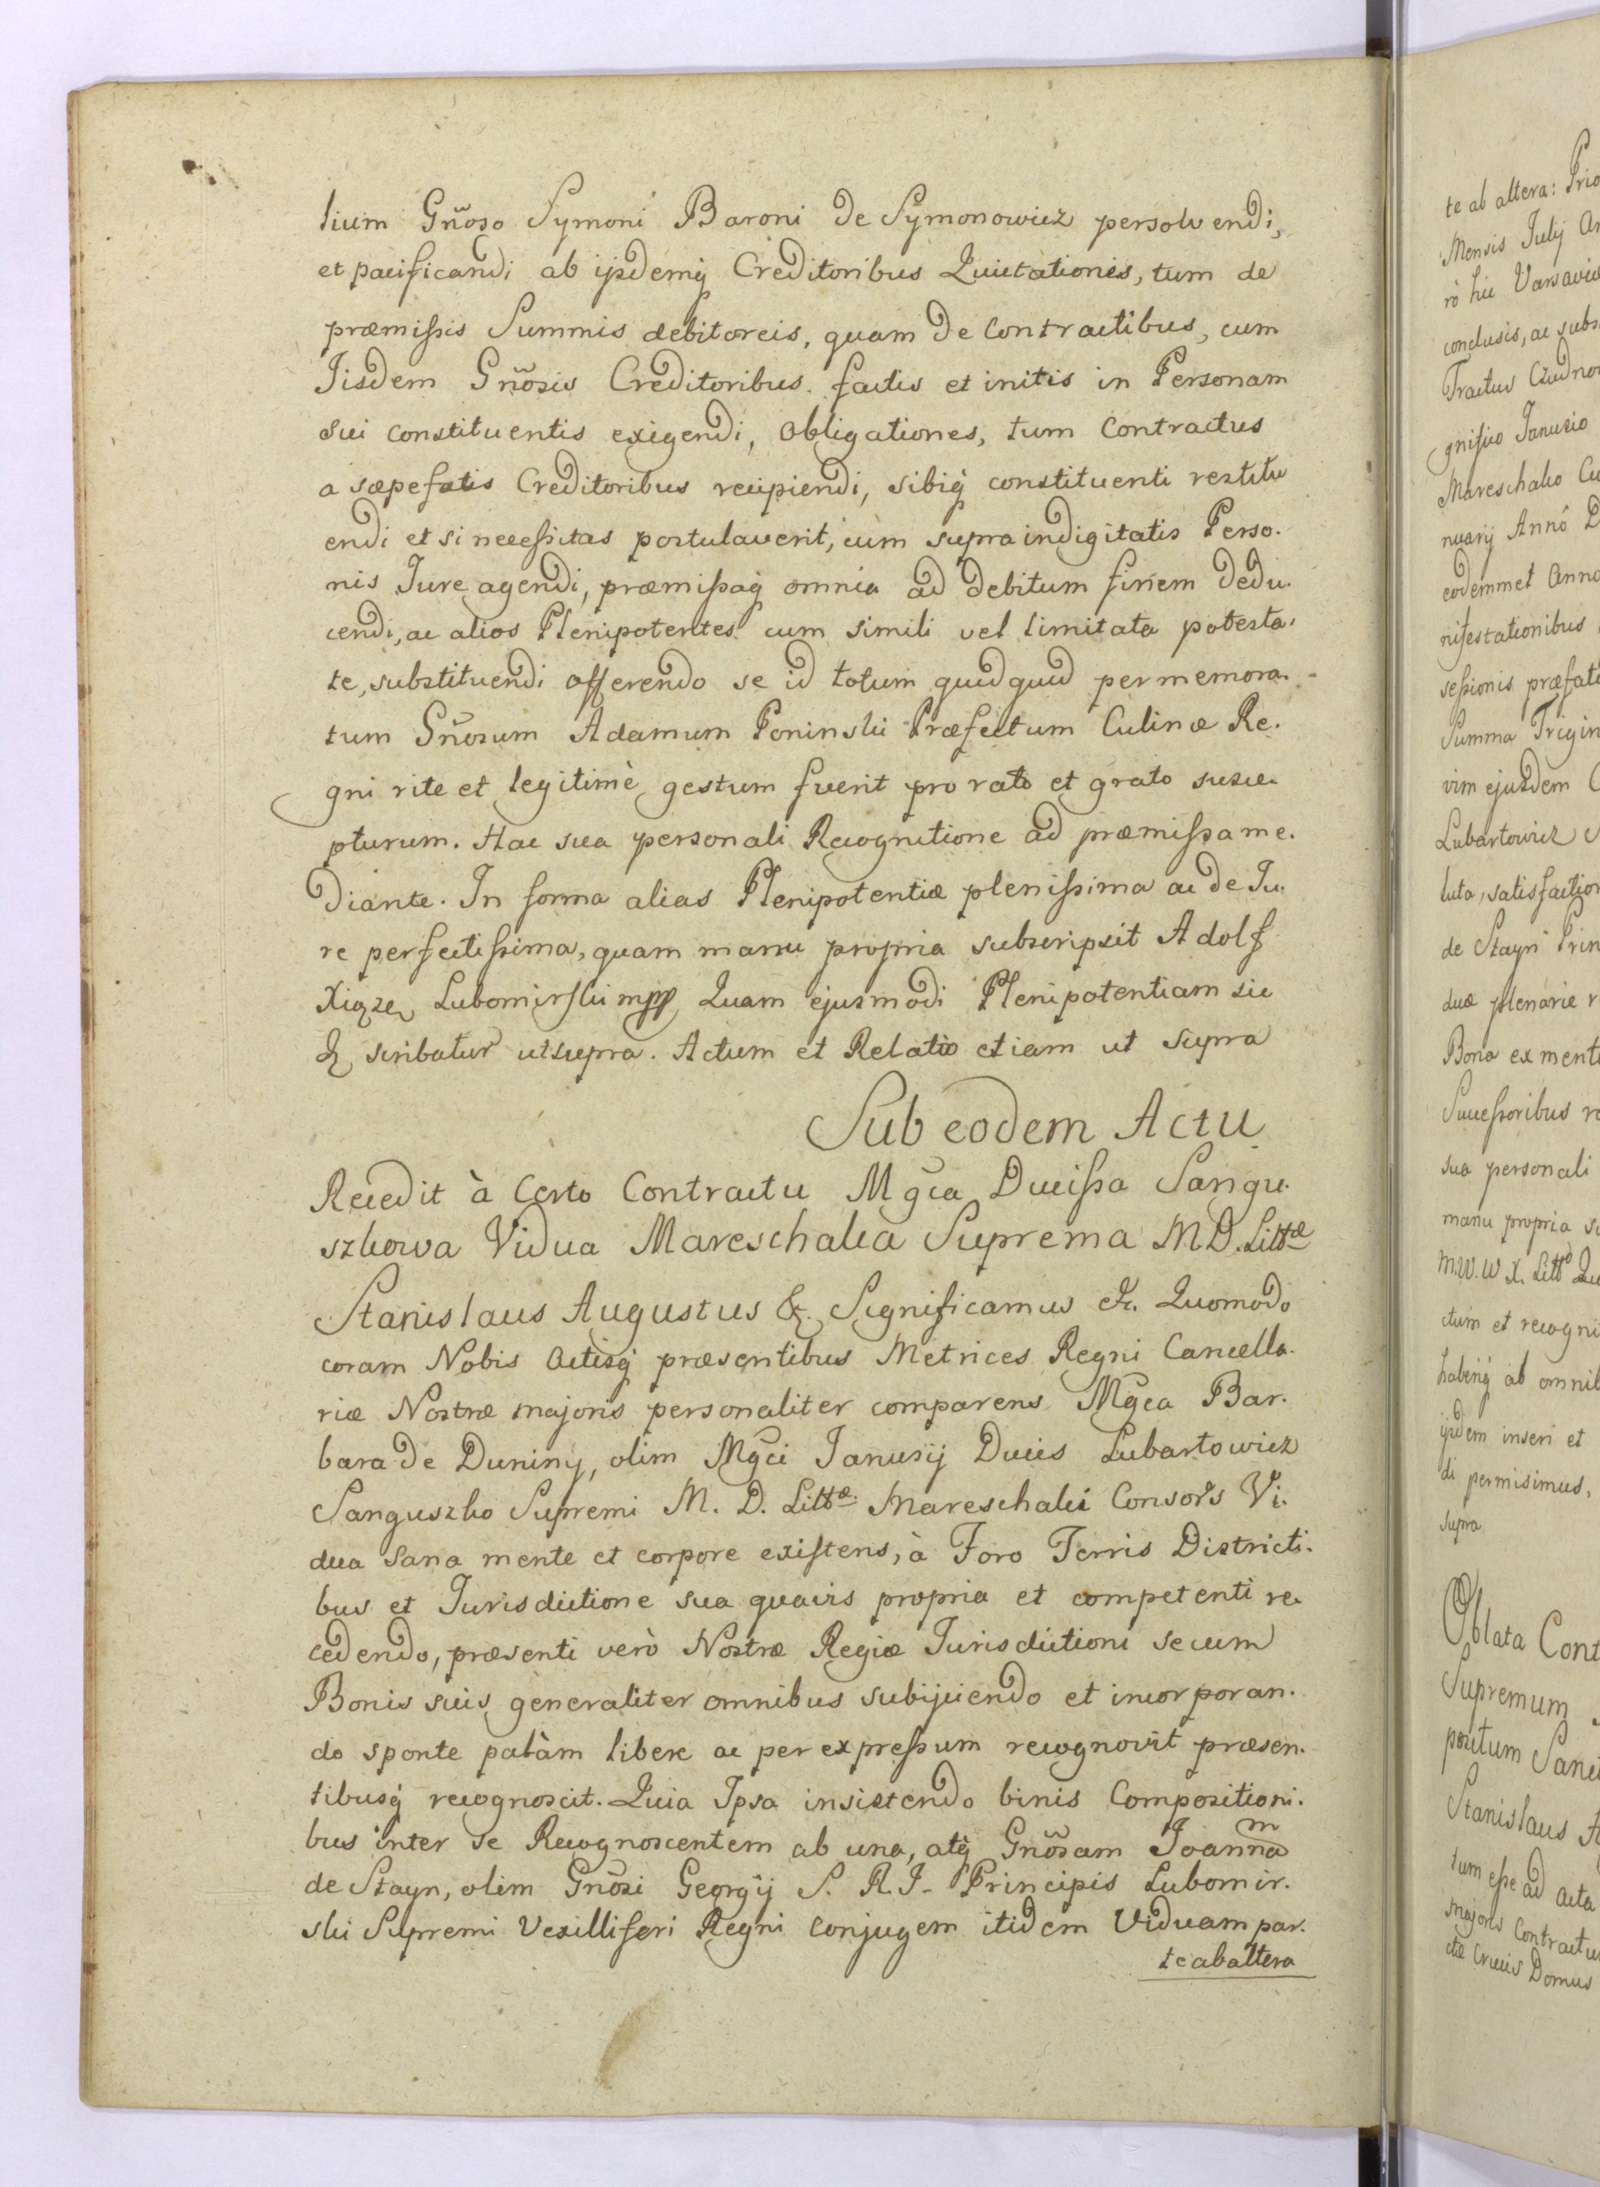 lium Gñoso Symoni Baroni de Symonowicz persolvendi,
et pacificandi ab ijsdemq́ Creditoribus Quietationes, tum de
præmissis Summis debitoreis, quam de Contractibus, cum
Iisdem Gñosis Creditoribus factis et initis in Personam
sui constituentis exigendi, Obligationes, tum Contractus
a sæpefatis Creditoribus recipiendi, sibiq́ constituenti restitu
endi et si necessitas postulaverit, cum supra indigitatis Perso.
nis Jure agendi, præmissaq́ omnia ad debitum finem dedu.
cendi, ac alios Plenipotentes cum simili vel limitata potesta.
te, substituendi offerendo se id totum quidquid per memora.
tum Gñosum Adamum Poninski Præfectum Culinæ Re.
gni rite et legitimè gestum fuerit pro rato et grato susce.
pturum. Hac sua personali Recognitione ad præmissa me.
diante. In forma alias Plenipotentiæ plenissima ac de Ju.
re perfectissima, quam manu propria subscripsit Adolf
Xiąze Lubomirski mpp Quam ejusmodi Plenipotentiam sic
& scribatur ut supra. Actum et Relatio etiam ut supra
Sub eodem Actu
Recedit à Certo Contractu Mgca Ducissa Sangu.
szkowa Vidua Mareschalca Suprema M.D. Littæ
Stanislaus Augustus &. Significamus &. Quomodo
coram Nobis Actisq́ præsentibus Metrices Regni Cancella.
riæ Nostræ majoris personaliter comparens Mgca Bar.
bara de Duniny, olim Mgci Janusij Ducis Lubartowicz
Sanguszko Supremi M. D. Littæ. Mareschalci Consors Vi.
dua sana mente et corpore existens, à Foro Terris Districti.
bus et Jurisdictione sua quavis propria et competenti re.
cedendo, præsenti verò Nostræ Regiæ Jurisdictioni se cum
Bonis suis generaliter omnibus subijciendo et incorporan.
do sponte palàm libere ac per expressum recognovit præsen.
tibusq́ recognoscit. Quia Ipsa insistendo binis Compositioni.
bus inter se Recognoscentem ab una, atq́ Gñosam Joannam
de Stayn, olim Gñosi Georgij S. R. I. Principis Lubomir.
ski Supremi Vexilliferi Regni conjugem itidem Viduam par.
te ab altera
te ab altera: Prio
Mensis Julij An
rò hic Varsavia
conclusis, ac subs
Tractus Czudno
gnifico Janusio
Mareschalco Cu
nuarij Annô D
eodemmet Anno
nifestationibus
sessionis præfati
Summa Trigin
vim ejusdem C
Lubartowicz
luta, satisfaction
de Stayn Prin
duæ plenarie r
Bona ex mente
Successoribus re
sua personali
manu propria su
M.W.W X. Litt° Qu
ctum et recogni
habenq́ ab omnib
ijsdem inseri et
di permisimus,
supra
Oblata Cont
Supremum
positum Sanc
Stanislaus A
tum esse ad acta
majoris Contractu
ctæ Crucis Domus